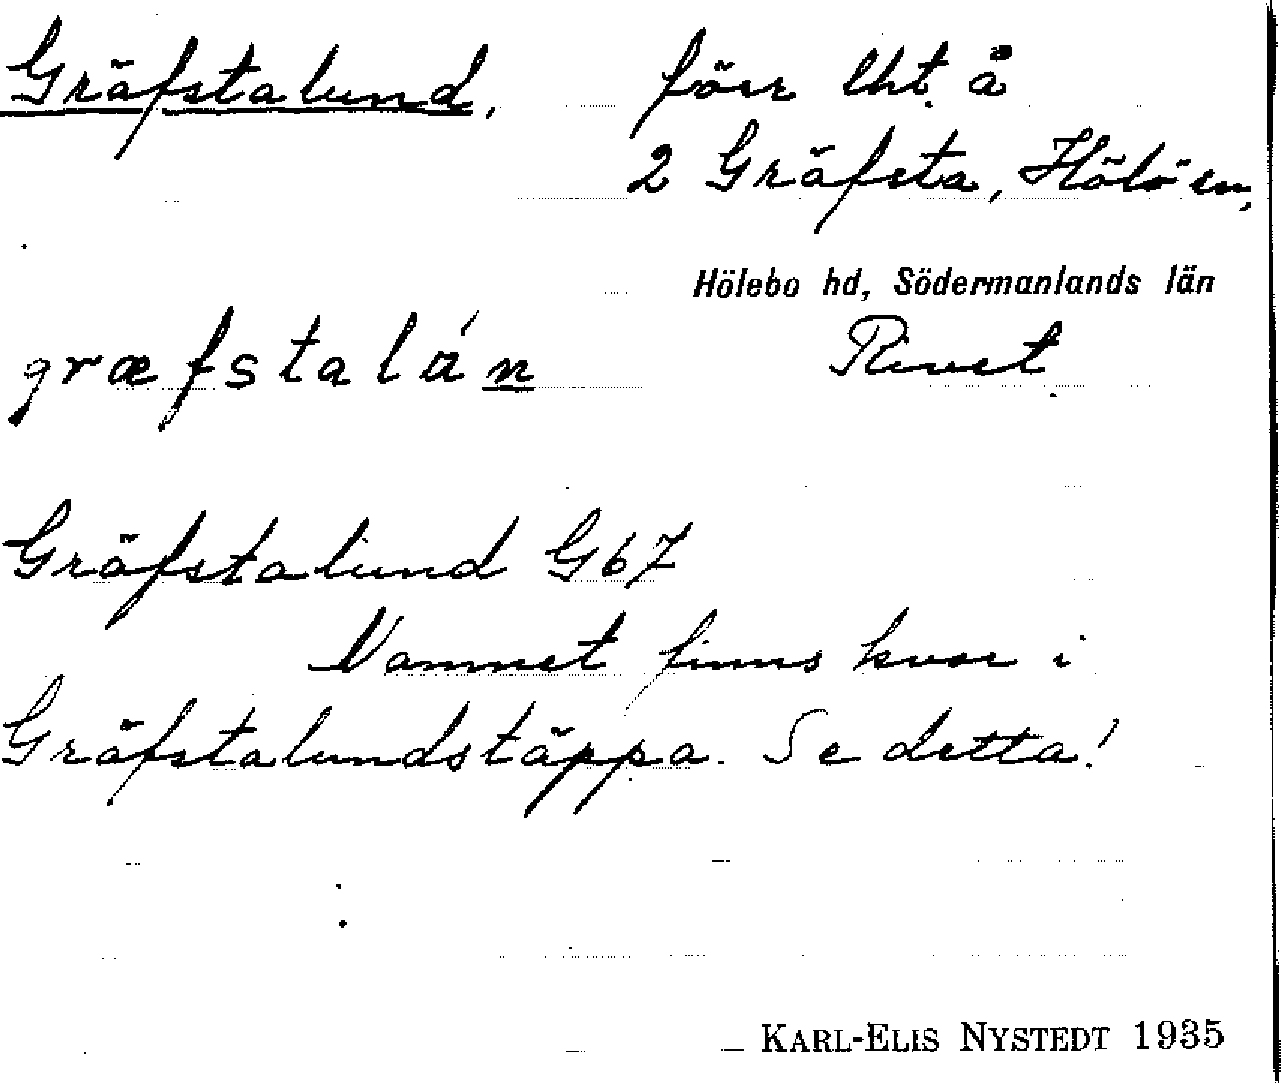 Gräfstalund, förr lht. å
2 Gräfsta, Hölö sn,
Hölebo hd, Södermanlands län
græfstalán Rivet
Gräfstalund G67
Namnet finns kvar i
Gräfstalundstäppa. Se detta!
KARL-ELIS NYSTEDT 1935